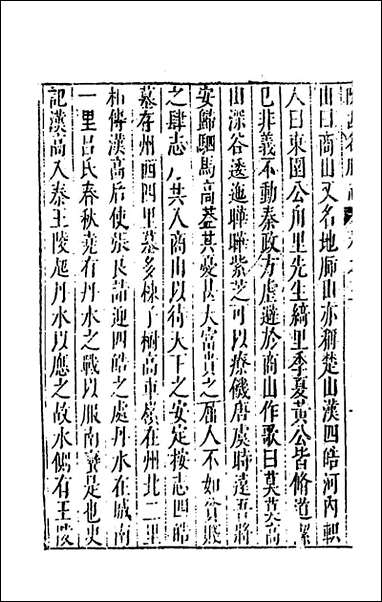 山曰商山又名地肺山亦稱楚山漢四皓河內軹
人曰東園公甪里先生綺里季夏黃公皆脩道潔
己非義不動秦政方虐避於商山作歌曰莫莫高
山深谷逶迤曄曄紫芝可以療饑唐虞時遠吾將
安歸駟馬高蓋其憂甚大富貴之畏人不如貧賤
之肆志乃共入商山以待天下之安定按志四皓
墓存州西四里墓多棟了桐高車嶺在州北二里
相傳漢高后使張良詣迎四皓之處丹水在城南
一里呂氏春秋堯有丹水之戰以服南蠻是也史
記漢高入秦王陵起丹水以應之故水側有王陵